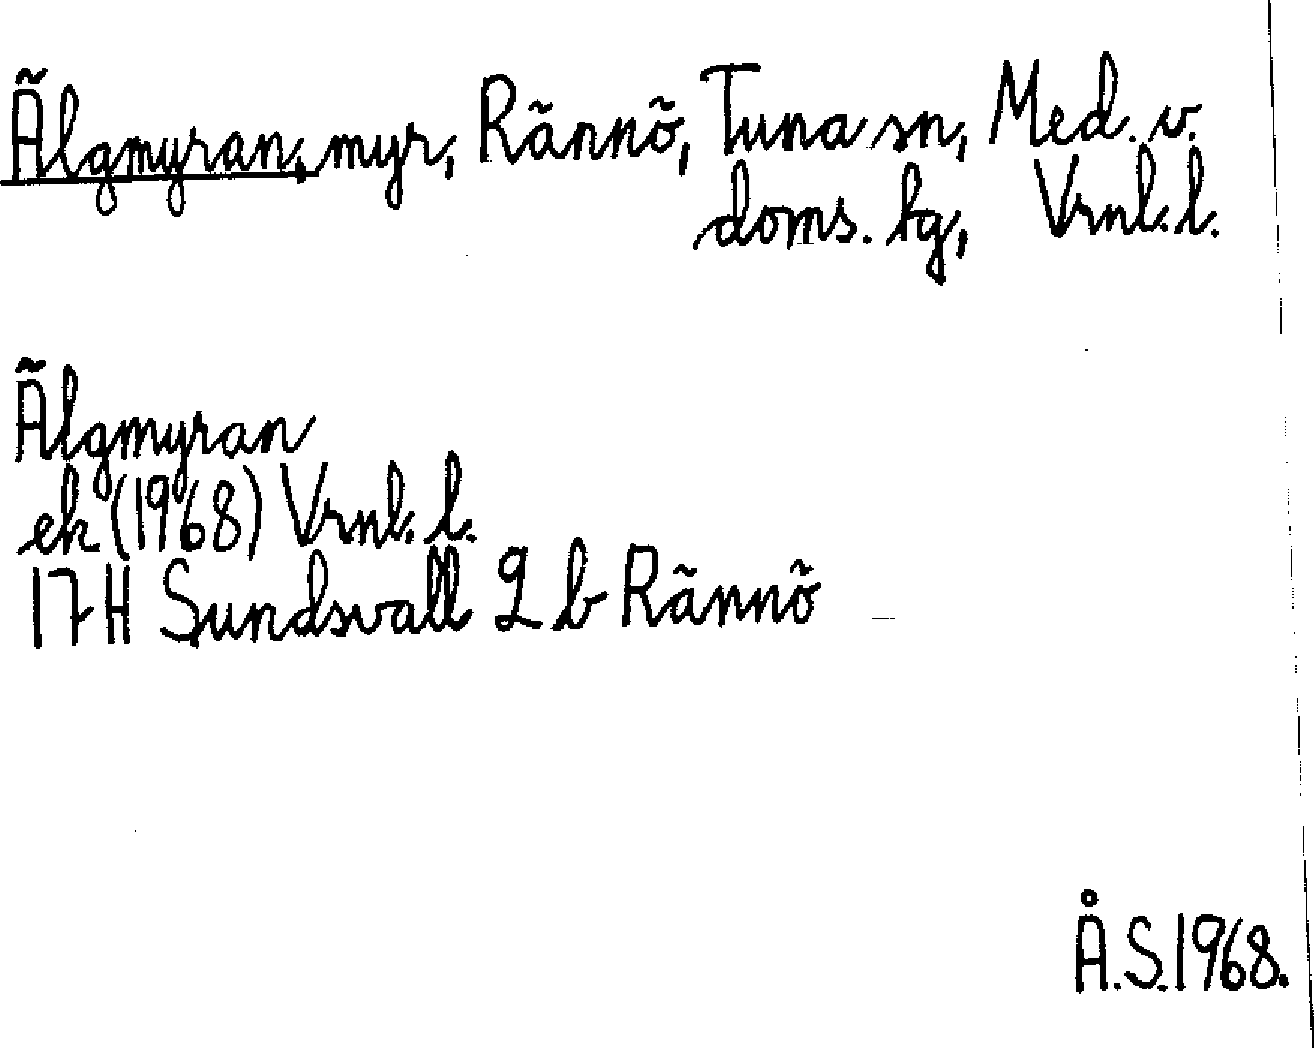 Älgmyran, myr, Rännö, Tuna sn, Med. v.
doms. lg, Vrnl. l.
Älgmyran
ek (1968) Vrnl. l.
17H Sundsvall 2 b Rännö
Å.S. 1968.